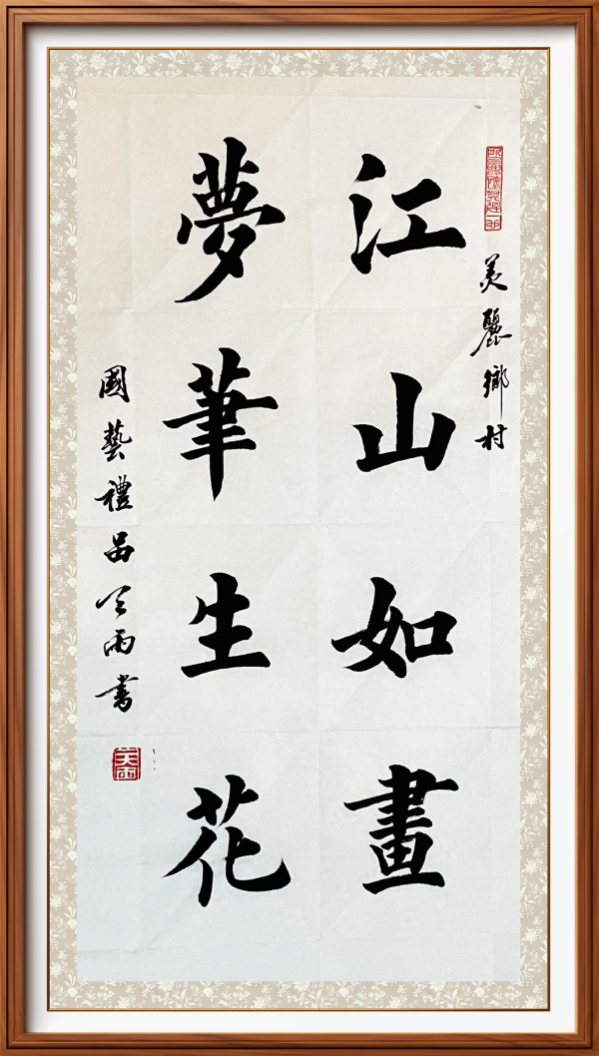 美麗鄉村
江山如畫
夢筆生花
國藝禮品天雨書